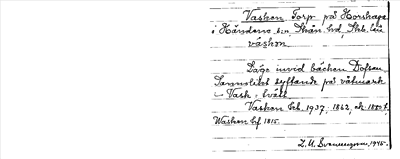 Vasken Torp på Horshaga
i Händene sn Skån. hd, Skb. län
váskən
Läge invid bäcken Dofsan.
Sannolikt syftande på våtmark
Vask : tvätt
Vasken Gsk. 1937, 1862, ek. 1880 t,
Wasken hf 1815.
1945.